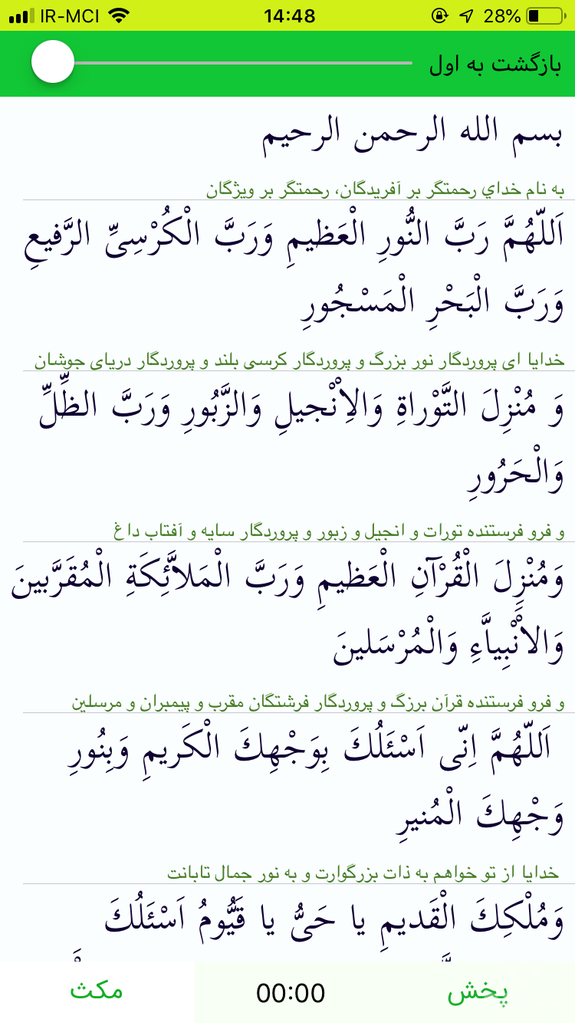 IR-MCI 14:48 28%
بازگشت به اول
بسم الله الرحمن الرحيم
به نام خداي رحمتگر بر آفريدگان، رحمتگر بر ويژگان
اَللّهُمَّ رَبَّ النُّورِ الْعَظيمِ وَرَبَّ الْكُرْسِىِّ الرَّفيعِ
وَرَبَّ الْبَحْرِ الْمَسْجُورِ
خدايا اى پروردگار نور بزرگ و پروردگار کرسى بلند و پروردگار درياى جوشان
وَ مُنْزِلَ التَّوْراةِ وَالاِْنْجيلِ وَالزَّبُورِ وَرَبَّ الظِّلِّ
وَالْحَرُورِ
و فرو فرستنده تورات و انجيل و زبور و پروردگار سايه و آفتاب داغ
وَمُنْزِلَ الْقُرْآنِ الْعَظيمِ وَرَبَّ الْمَلاَّئِكَةِ الْمُقَرَّبينَ
وَالاَْنْبِياَّءِ وَالْمُرْسَلينَ
و فرو فرستنده قرآن برزگ و پروردگار فرشتگان مقرب و پيمبران و مرسلين
اَللّهُمَّ اِنّى اَسْئَلُكَ بِوَجْهِكَ الْكَريمِ وَبِنُورِ
وَجْهِكَ الْمُنيرِ
خدايا از تو خواهم به ذات بزرگوارت و به نور جمال تابانت
وَمُلْكِكَ الْقَديمِ يا حَىُّ يا قَيُّومُ اَسْئَلُكَ
پخش 00:00 مکث